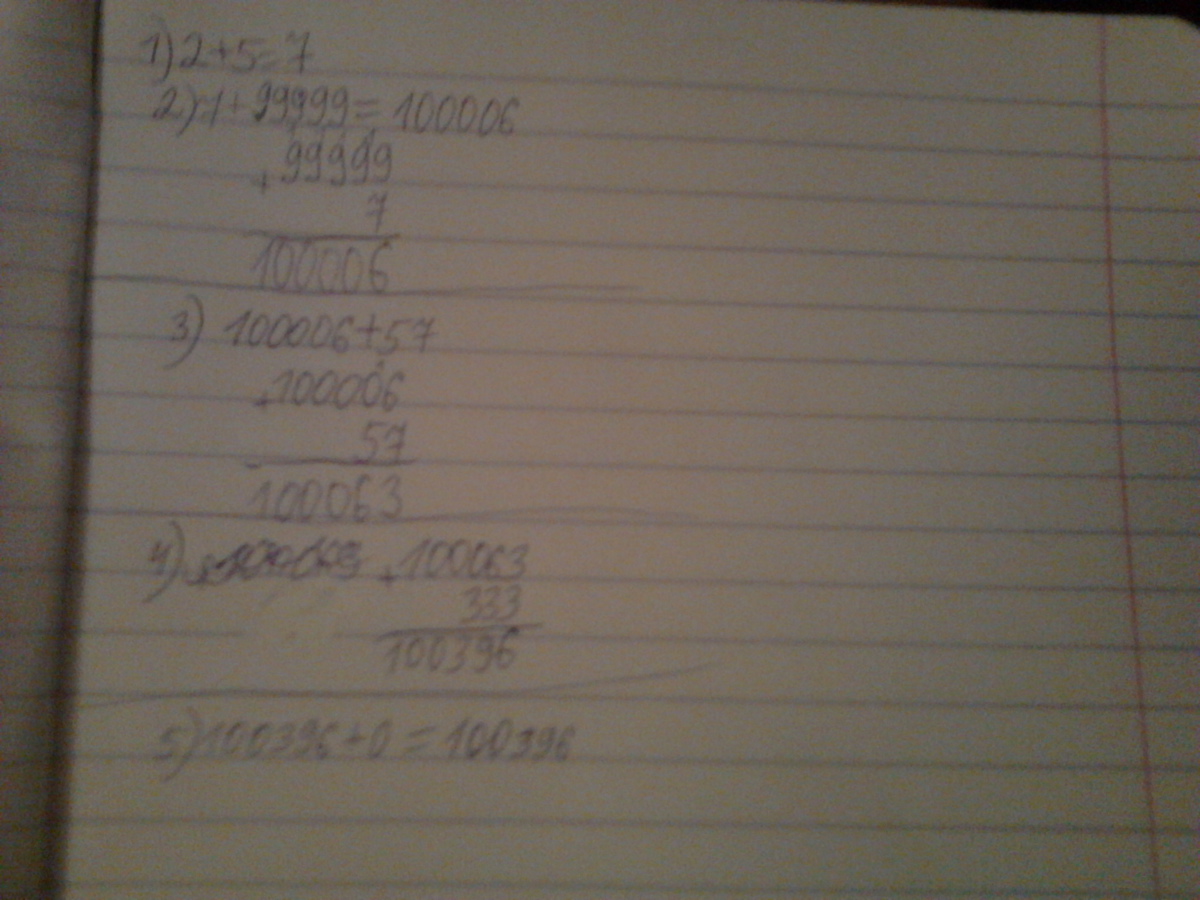 1) 2+5=7
2) 7+99999=100006
99999
+
7
100006
3) 100006+57
+100006
57
100063
4) +100063
333
100396
5) 100396+0=100396